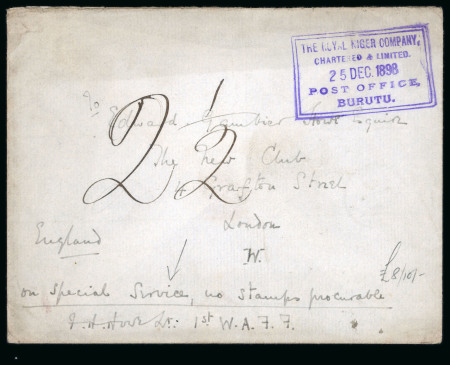 THE ROYAL NIGER COMPANY,
CHARTERED & LIMITED.
25 DEC. 1898
POST OFFICE,
BURUTU.
Edward Esquire
The New Club
4 Grafton Street
London
W.
England
2½
£8/10/-
on special Service, no stamps procurable
Lt. 1st W.A.F.F.